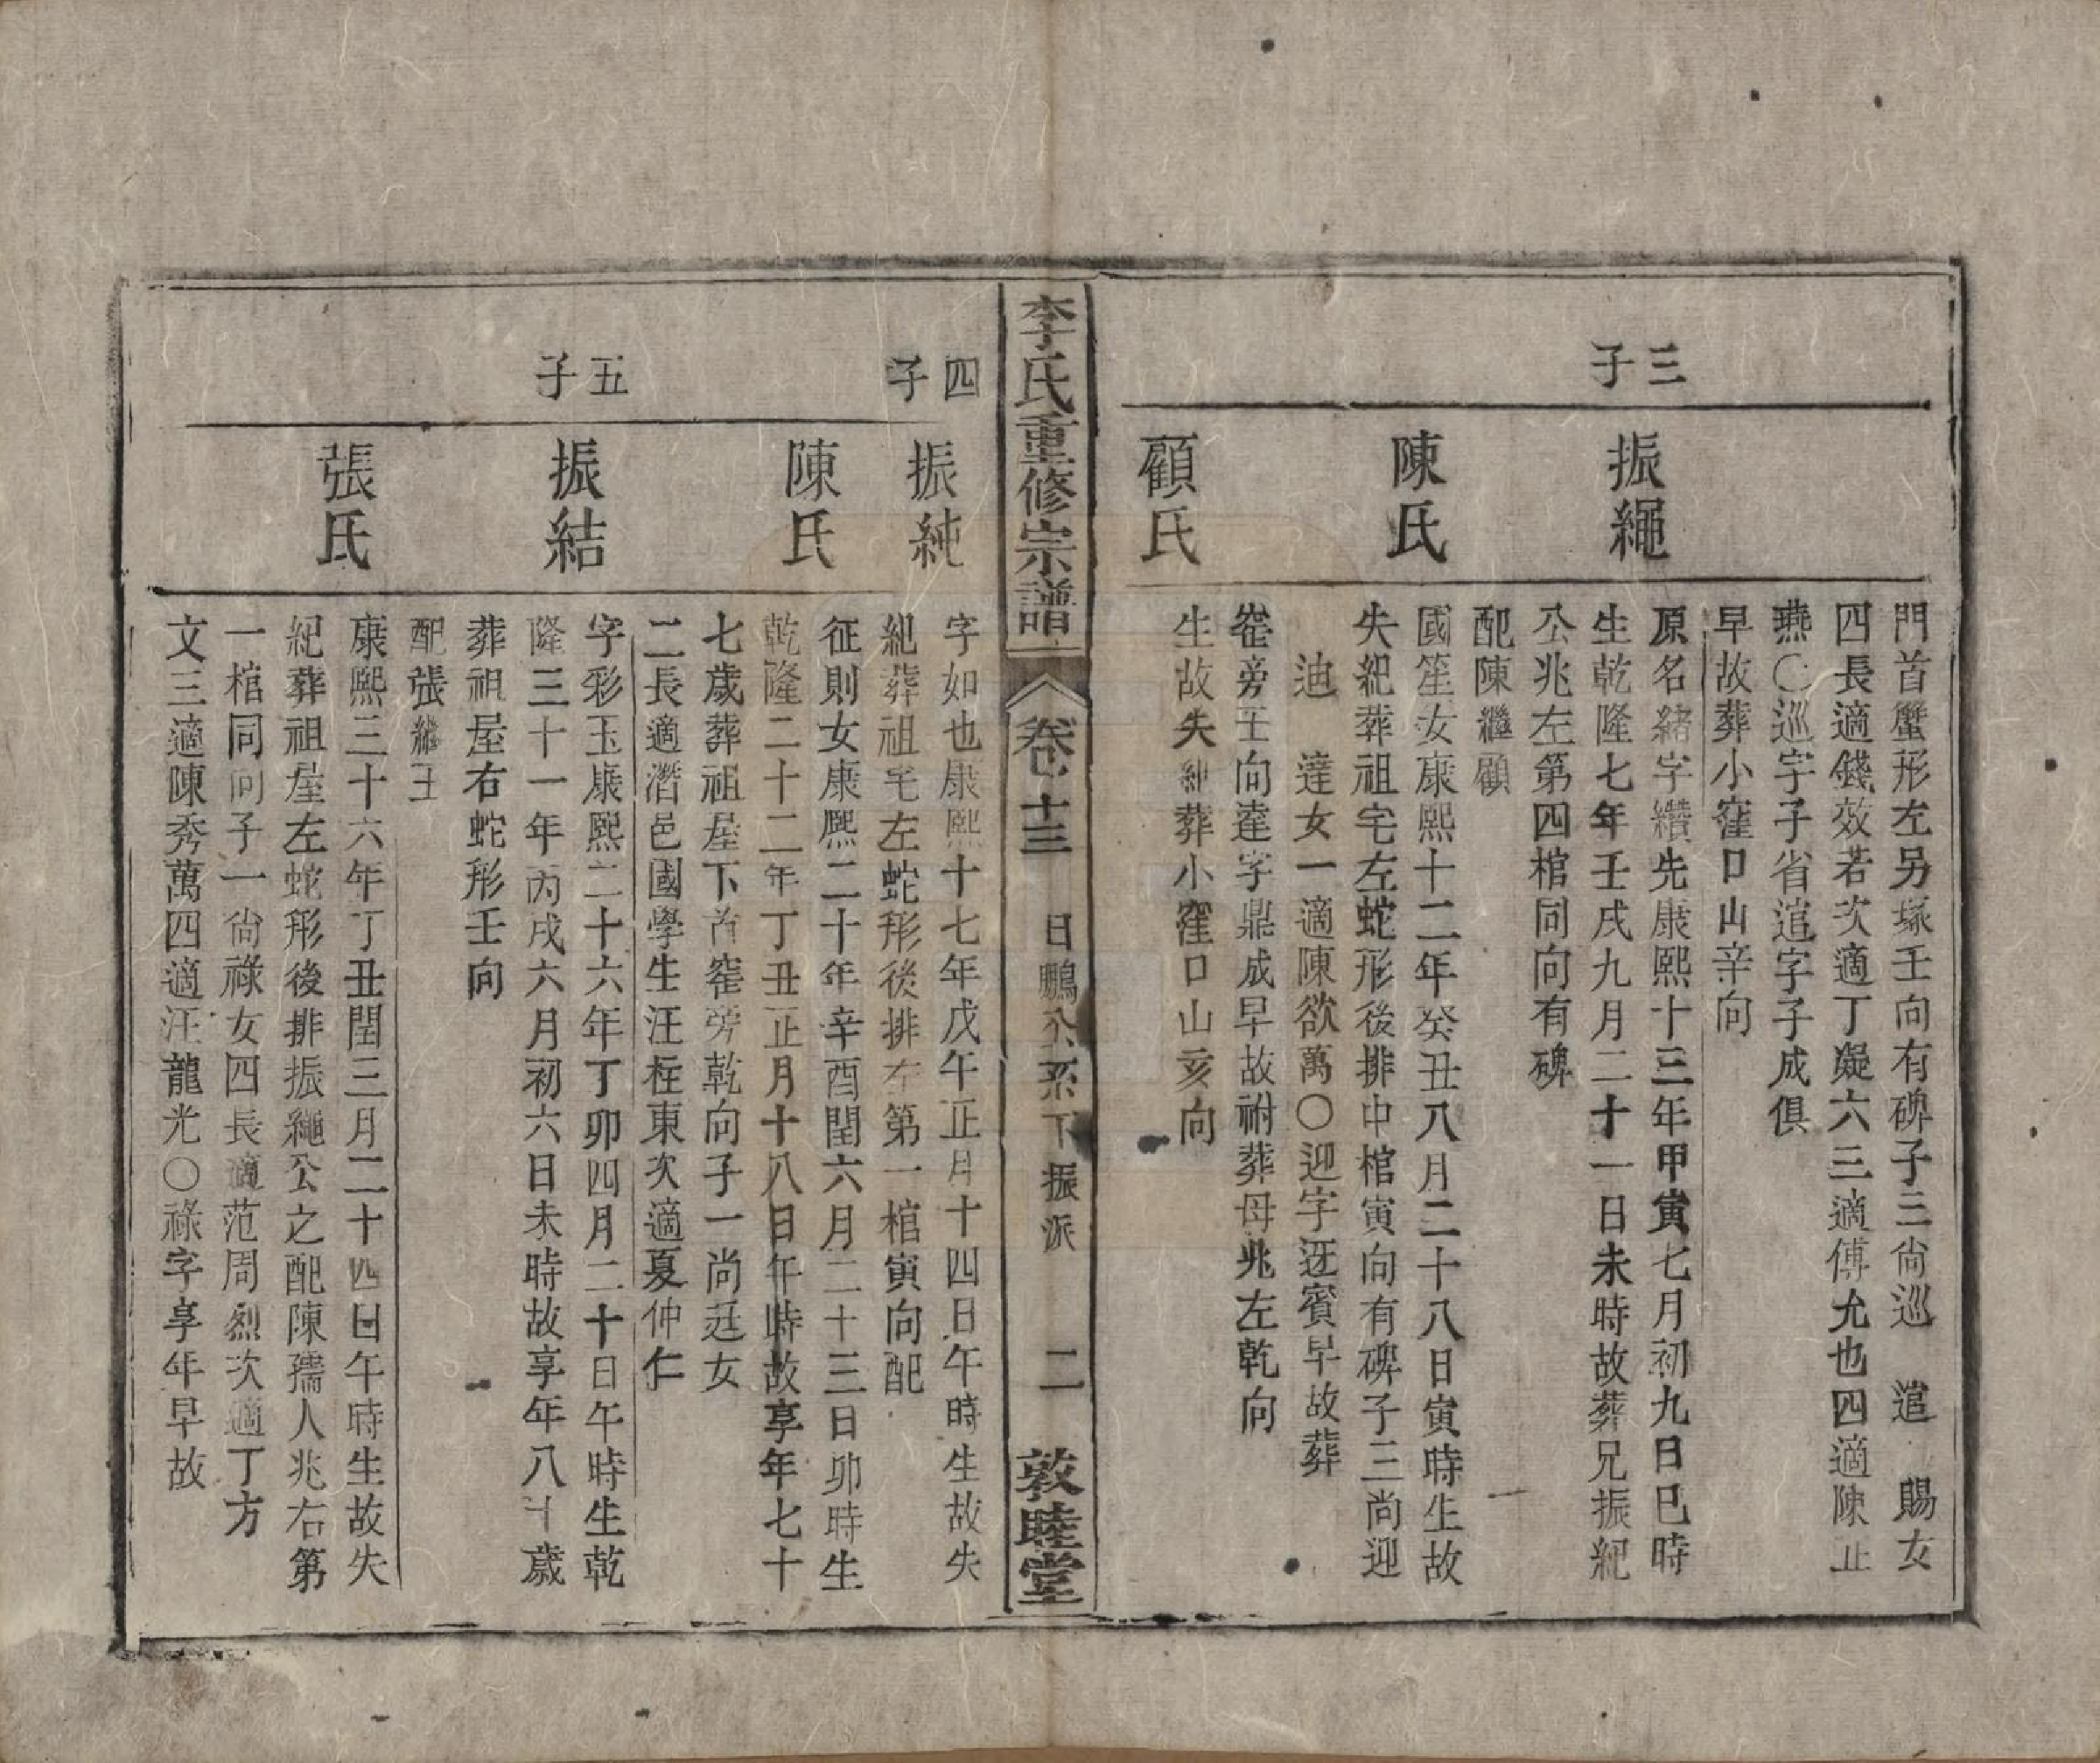 門首蟹形左另塚壬向有碑子三尙巡 逭 賜女
四長適錢效若次適丁凝六三適傅允也四適陳止
燕〇巡字子省逭字子成俱
早故葬小窪口山辛向
三子
振繩
原名緒字纘先康熙十三年甲寅七月初九日巳時
生乾隆七年壬戌九月二十一日未時故葬兄振紀
公兆左第四棺同向有碑
配陳繼顧
陳氏
國筀女康熙十二年癸丑八月二十八日寅時生故
失紀葬祖宅左蛇形後排中棺寅向有碑子三尚迎
迪 達女一適陳欲萬〇迎字迓賓早故葬
窰旁壬向達字鼎成早故祔葬母兆左乾向
顧氏
生故失紀葬小窪口山亥向
李氏重修宗譜
卷十三 日鵬公系下振派 二 敦睦堂
四子
振純
字如也康熙十七年戊午正月十四日午時生故失
紀葬祖宅左蛇形後排左第一棺寅向配
陳氏
征則女康熙二十年辛酉閏六月二十三日卯時生
乾隆二十二年丁丑正月十八日午時故享年七十
七歲葬祖屋下首窰旁乾向子一尚廷女
二長適潛邑國學生汪柱東次適夏仲仁
五子
振結
字彩玉康熙二十六年丁卯四月二十日午時生乾
隆三十一年丙戌六月初六日未時故享年八十歲
葬祖屋右蛇形壬向
配張繼王
張氏
康熙三十六年丁丑閏三月二十四日午時生故失
紀葬祖屋左蛇形後排振繩公之配陳孺人兆右第
一棺同向子一尙祿女四長適范周烈次適丁方
文三適陳秀萬四適汪龍光〇祿字享年早故